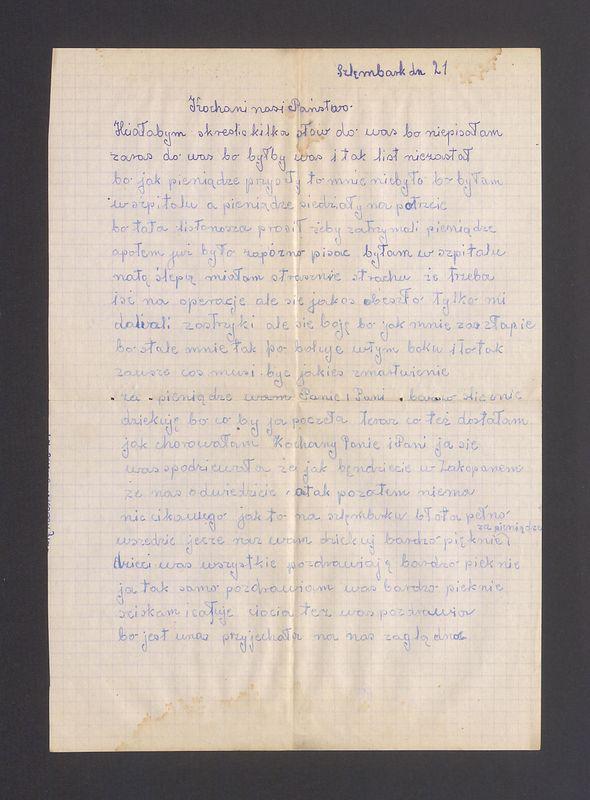 Szlęmbark dn 21
Kochani nasi Państwo.
Hciałabym skreslic kilka słow do was bo niepisałam
zaras do was bo byłby was i tak list niezastał
bo jak pieniądze przyszły to mnie niebyło bo byłam
w szpitalu a pieniądze siedziały na potrzcie
bo tata listonosza prosił żeby zatrzymali pieniądze
apotem już było zapózno pisac byłam w szpitalu
natą slepią miałam strasznie strachu że trzeba
iść na operacje ale sie jakos obeszło tylko mi
dawali zastrzyki ale sie boję bo jak mnie złapie
bo stale mnie tak po boluje w tym boku i to tak
zawsze cos musi byc jakies zmartwienie
za pieniądze wam Panie i Pani slicznie
dziekuję bo co by ja poczeła teraz co też dostałam
jak chorowałam Kochany Panie i Pani ja sie
was spodziewała że jak bęndziecie w Zakopanem
ze nas odwiedzicie atak pozatem niema
nic cikawego jak to na szlęmbarku błota pełno
za pieniądze
wszedzie jesze raz wam dziekuj bardzo pięknie
dzieci was wszystkie pozdrawiają bardzo pieknie
ja tak samo pozdrawiam was bardzo pieknie
sciskam i całuje ciocia tez was pozdrawia
bo jest unas przyjechała na nas zaglądnoc